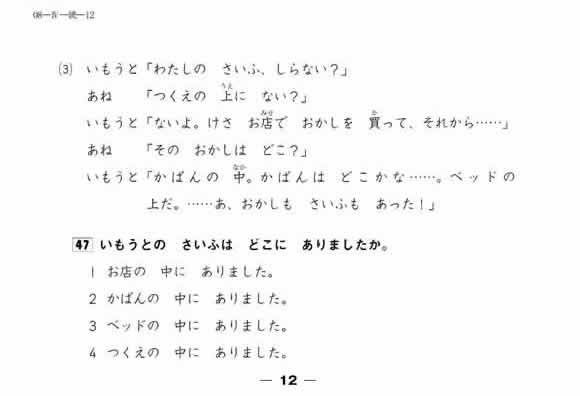 08－Ⅳ－読－12
(3) いもうと「わたしの さいふ、しらない？」
あね 「つくえの 上に ない？」
いもうと「ないよ。けさ お店で おかしを 買って、それから……」
あね 「その おかしは どこ？」
いもうと「かばんの 中。かばんは どこかな……。ベッドの
上だ。……あ、おかしも さいふも あった！」
47 いもうとの さいふは どこに ありましたか。
1 お店の 中に ありました。
2 かばんの 中に ありました。
3 ベッドの 中に ありました。
4 つくえの 中に ありました。
― 12 ―